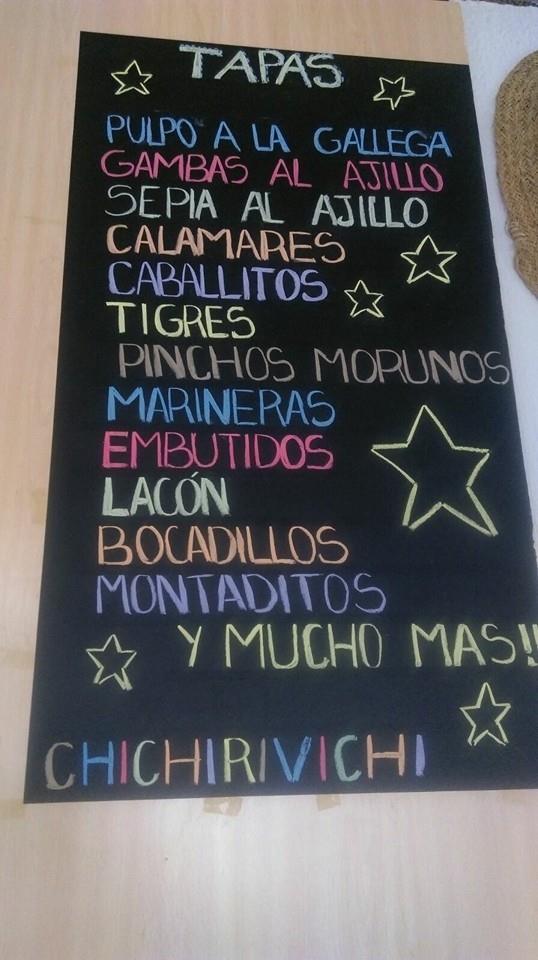 TAPAS
PULPO A LA GALLEGA
GAMBAS AL AJILLO
SEPIA AL AJILLO
CALAMARES
CABALLITOS
TIGRES
PINCHOS MORUNOS
MARINERAS
EMBUTIDOS
LACÓN
BOCADILLOS
MONTADITOS
Y MUCHO MAS!!
CHICHIRIVICHI